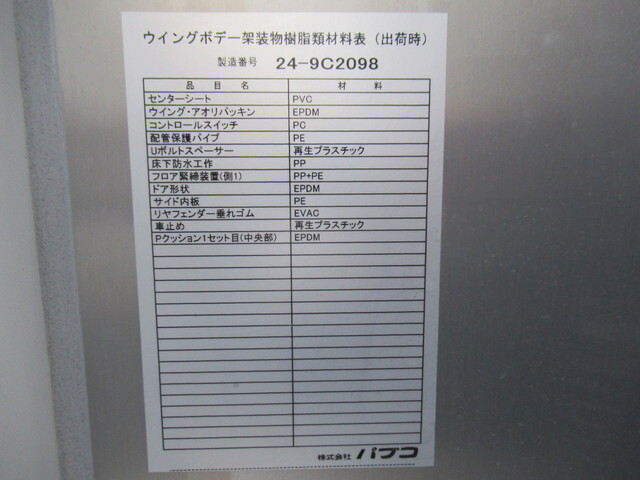 ウイングボデー架装物樹脂類材料表（出荷時）
製造番号 24-9C2098
品目名 材料
センターシート PVC
ウイング・アオリパッキン EPDM
コントロールスイッチ PC
配管保護パイプ PE
Uボルトスペーサー 再生プラスチック
床下防水工作 PP
フロア緊締装置(側1) PP+PE
ドア形状 EPDM
サイド内板 PE
リヤフェンダー垂れゴム EVAC
車止め 再生プラスチック
Pクッション1セット目(中央部) EPDM
株式会社 パブコ